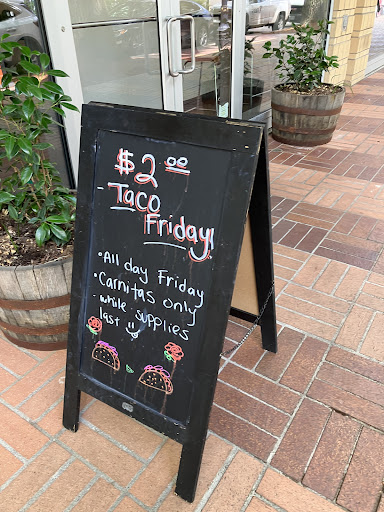 $2.00
Taco
Friday!
• All day Friday
• Carnitas only
- while supplies
last